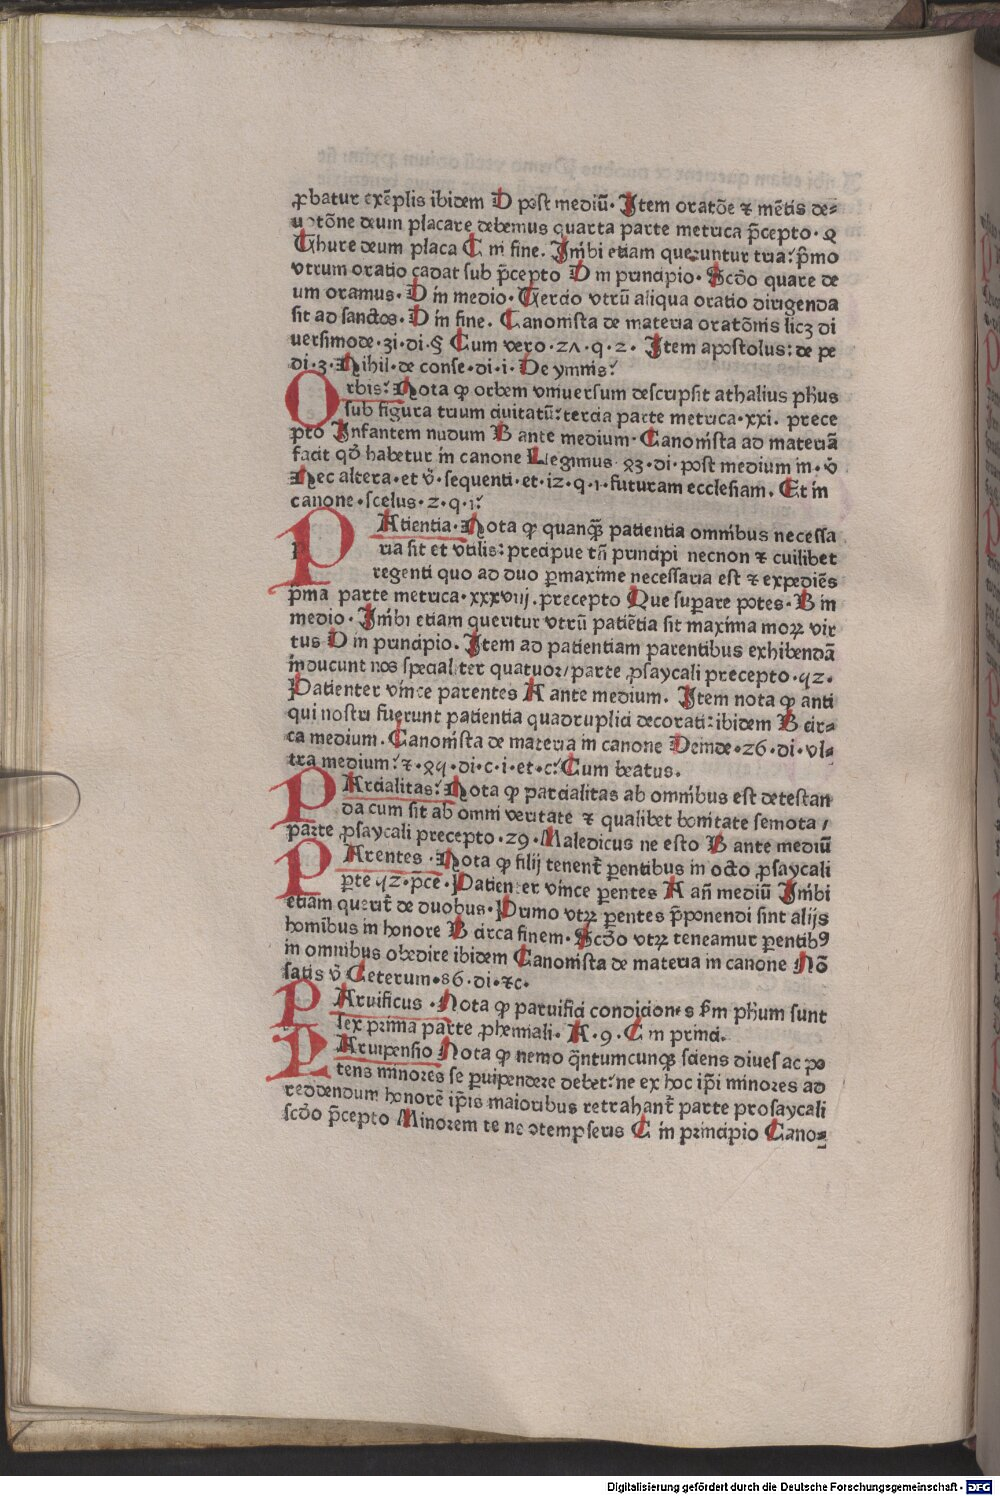 ꝓbatur exẽplis ibidem D post mediũ. Item oratõe ⁊ mẽtis de⸗
uotõne deum placare debemus quarta parte metrica p̃cepto. 9
Thure deum placa C in fine. Inibi etiam queruntur tria: p̃mo
vtrum oratio cadat sub p̃cepto D in principio. Scďo quare de
um oramus. D in medio. Tercio vtrũ aliqua oratio dirigenda
sit ad sanctos. D in fine. Canonista de materia oratõnis licꝫ di
uersimode. 31. di. § Cum vero. 21. q. 2. Item apostolus: de pe
di. 3. Nihil. de conse. di. i. De ymnis:
Orbis: Nota ꝙ orbem vniuersum descripsit athalius ph̃us
sub figura trium ciuitatũ: tercia parte metrica. xxi. prece
pto Infantem nudum B ante medium. Canonista ad materiã
facit qď habetur in canone Legimus 93. di. post medium in. v̇
Nec altera. et v̇. sequenti. et. 12. q. 1. futuram ecclesiam. Et in
canone. scelus. 2. q. 1:
PAtientia. Nota ꝙ quanqꝫ patientia omnibus necessa
ria sit et vtilis: precipue tñ principi necnon ⁊ cuilibet
regenti quo ad duo ꝑmaxime necessaria est ⁊ expediẽs
p̃ma parte metrica. xxxviij. precepto Que suꝑare potes. B in
medio. Inibi etiam queritur vtrũ patiẽtia sit maxima moꝝ vir
tus D in principio. Item ad patientiam parentibus exhibendã
inducunt nos specialiter quatuor/ parte ꝓsaycali precepto. 42.
Patienter vince parentes A ante medium. Item nota ꝙ anti
qui nostri fuerunt patientia quadruplici decorati: ibidem B cir⸗
ca medium. Canonista de materia in canone Deinde. 26. di. vl⸗
tra medium: ⁊. 94. di. c. i. et. c: Cum beatus.
PArcialitas: Nota ꝙ parcialitas ab omnibus est detestan
da cum sit ab omni veritate ⁊ qualibet bonitate semota /
parte ꝓsaycali precepto. 29. Maledicus ne esto B ante mediũ
PArentes. Nota ꝙ filij tenent̃ ꝑentibus in octo ꝓsaycali
ꝑte 42. p̃ce. Patienter vince ꝑentes A añ mediũ Inibi
etiam querit̃ de duobus. Primo vtꝝ ꝑentes p̃ponendi sint alijs
hominibus in honore B circa finem. Scďo vtꝝ teneamur ꝑentibꝰ
in omnibus obedire ibidem Canonista de materia in canone Nõ
satis v̇ Ceterum. 86. di. ⁊c.
PAruificus. Nota ꝙ paruifici condiciones ẜm ph̃um sunt
sex prima parte ꝓhemiali. A. 9. C in princi.
PAruipensio Nota ꝙ nemo q̃ntumcunqꝫ sciens diues ac po
tens minores se ꝑuipendere debet: ne ex hoc ip̃i minores ad
reddendum honorẽ ip̃is maioribus retrahant̃ parte prosaycali
scďo p̃cepto Minorem te ne ↄtempseris C in principio Cano⸗
Digitalisierung gefördert durch die Deutsche Forschungsgemeinschaft - DFG